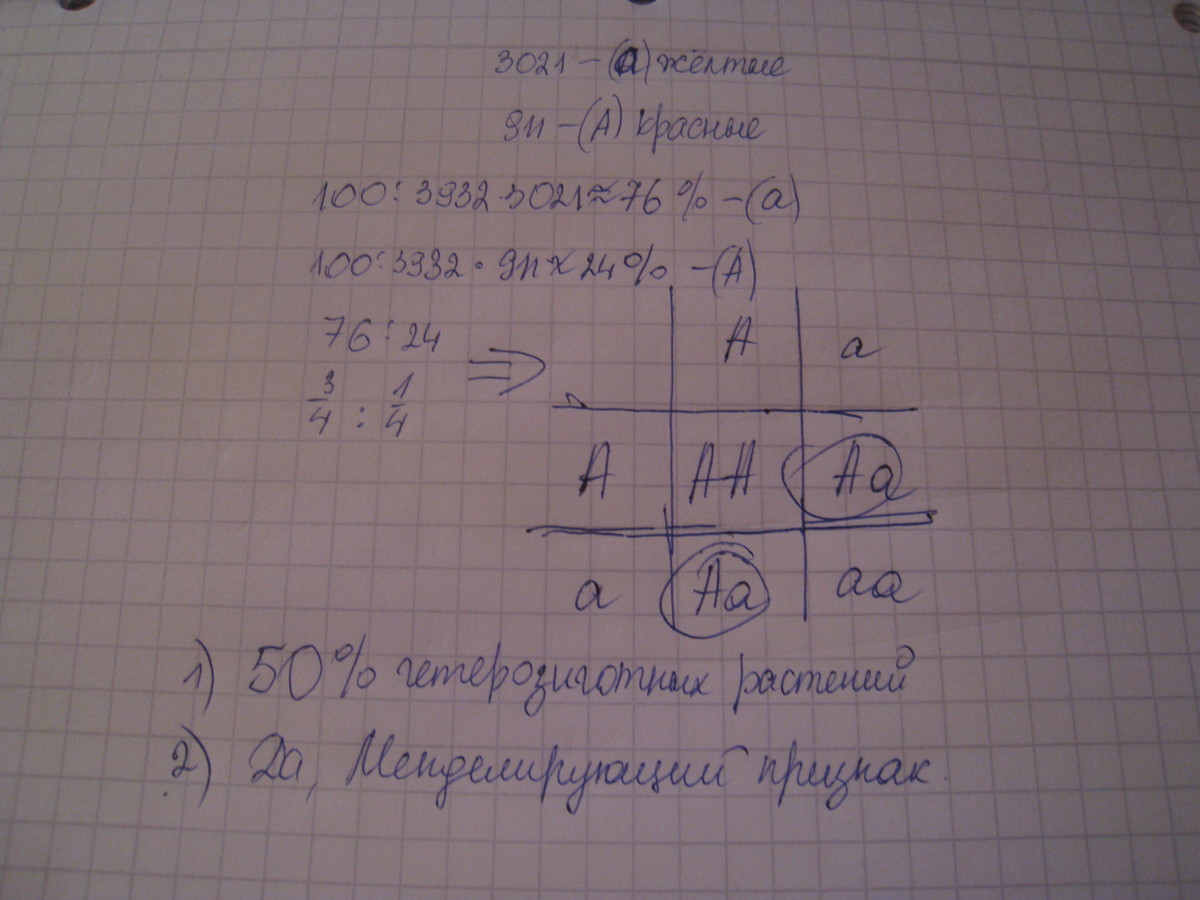 3021 – (а) жёлтые
911 – (А) красные
100 : 3932 · 3021 ≈ 76 % – (а)
100 : 3932 · 911 ≈ 24 % – (А)
76 : 24
3/4 : 1/4 ⇒
А а
А АА Аа
а Аа аа
1) 50% гетерозиготных растений
2) Да, Менделирующий признак.